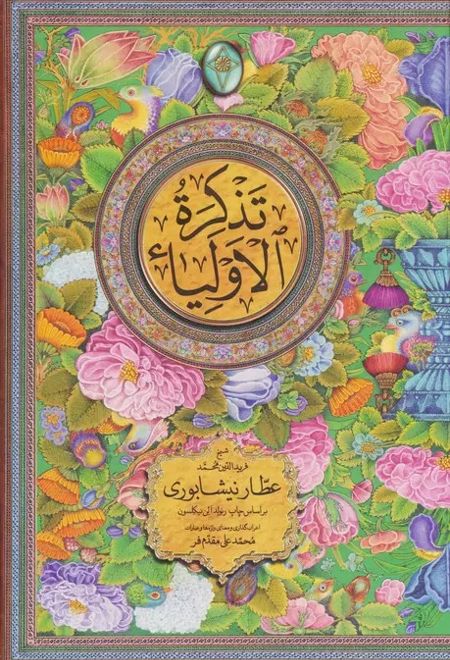 تَذكِرَةُ
الاَولِیاء
شیخ
فریدالدین محمّد
عطّار نیشابوری
بر اساس چاپ رینولد الین نیکلسون
اعراب‌گذاری و معنای واژه‌ها و عبارات
محمّدعلی مقدّم‌فر